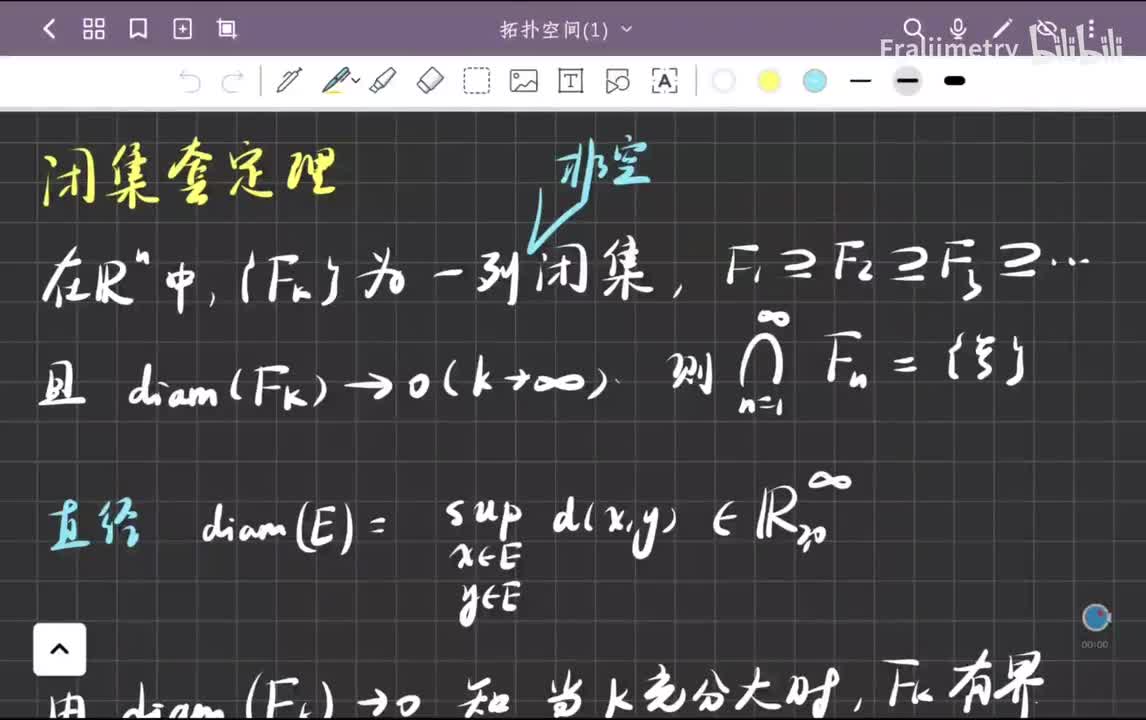 拓扑空间(1)
Fraljimetry bilibili
闭集套定理
非空
在ℝⁿ中, {Fₖ}为一列闭集, F₁ ⊇ F₂ ⊇ F₃ ⊇ ⋯
且 diam(Fₖ) → 0 (k→∞). 则 ⋂_{n=1}^{∞} Fₙ = {ξ}
直径 diam(E) = sup_{x∈E y∈E} d(x,y) ∈ ℝ_{≥0}^{∞}
00:00
由 diam(Fₖ) → 0 知 当 k 充分大时, Fₖ 有界